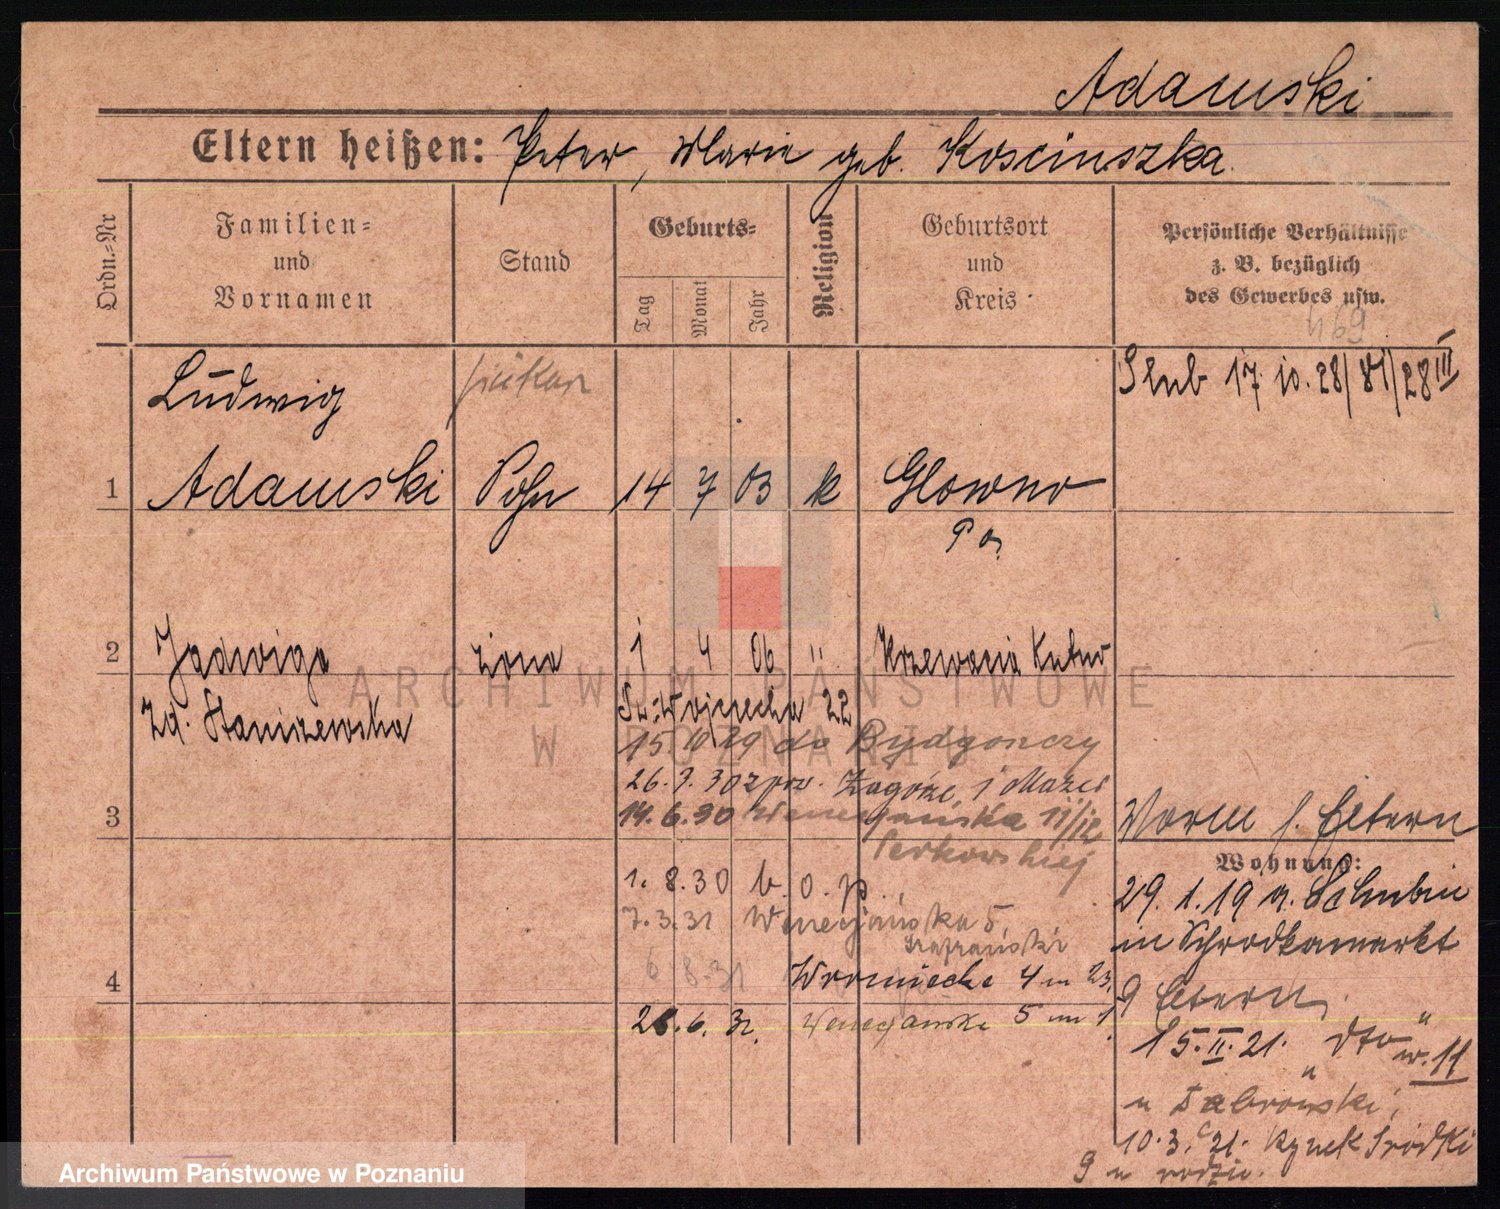 Adamski
Eltern heißen: Peter, Marie geb. Kosciuszka
Ordn.=Nr
Familien=
und
Vornamen
Stand
Geburts=
Tag
Monat
Jahr
Religion
Geburtsort
und
Kreis
Persönliche Verhältnisse
z. B. bezüglich
des Gewerbes usw.
469
Ludwig
Slub 17 10. 28/ 81/28 III
1 Adamski Sohn 14 7 03 k Glowno
Po
2 Jadwiga żona 1 4 06 " Krzewacia Kutno
Zd. Staniszewska
Św. Wojciecha 22
15 10 29 do Bydgoszczy
26. 3. 30 z pow. Zagórze 1 Mazur
3 14. 6. 30 Wenecjańska 11/12
Perkowskiej
Vorm f. Eltern
Wohnung:
1. 8. 30 b. o. p.
29. 1. 19 v. Schubin
7. 3. 31 Wenecjańska 5,
in Schrodkamarkt
4 6 8. 31 Wroniecka 4 m 23.
9 Eltern
26. 6. 32. Wenecjańska 5 m 1.
15. II. 21. dto w. 11
u Dabrowski,
10. 3. 21. Rynek Sródki
9 u rodzic.
ARCHIWUM PAŃSTWOWE
W POZNANIU
Archiwum Państwowe w Poznaniu